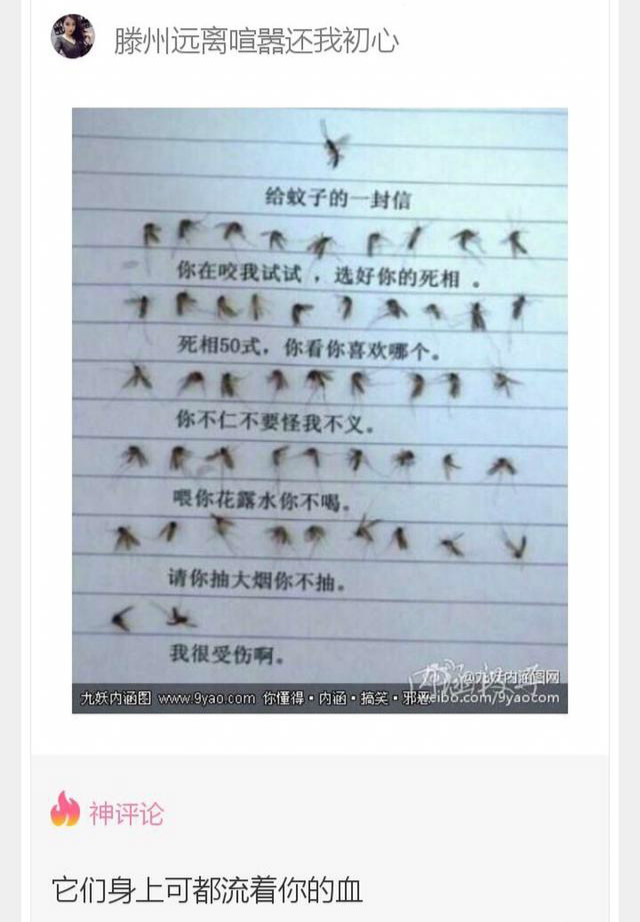 滕州远离喧嚣还我初心
给蚊子的一封信
你在咬我试试，选好你的死相 。
死相50式，你看你喜欢哪个。
你不仁不要怪我不义。
喂你花露水你不喝。
请你抽大烟你不抽。
我很受伤啊。
@九妖内涵图网
九妖内涵图 www.9yao.com 你懂得·内涵·搞笑·邪恶
weibo.com/9yaocom
神评论
它们身上可都流着你的血